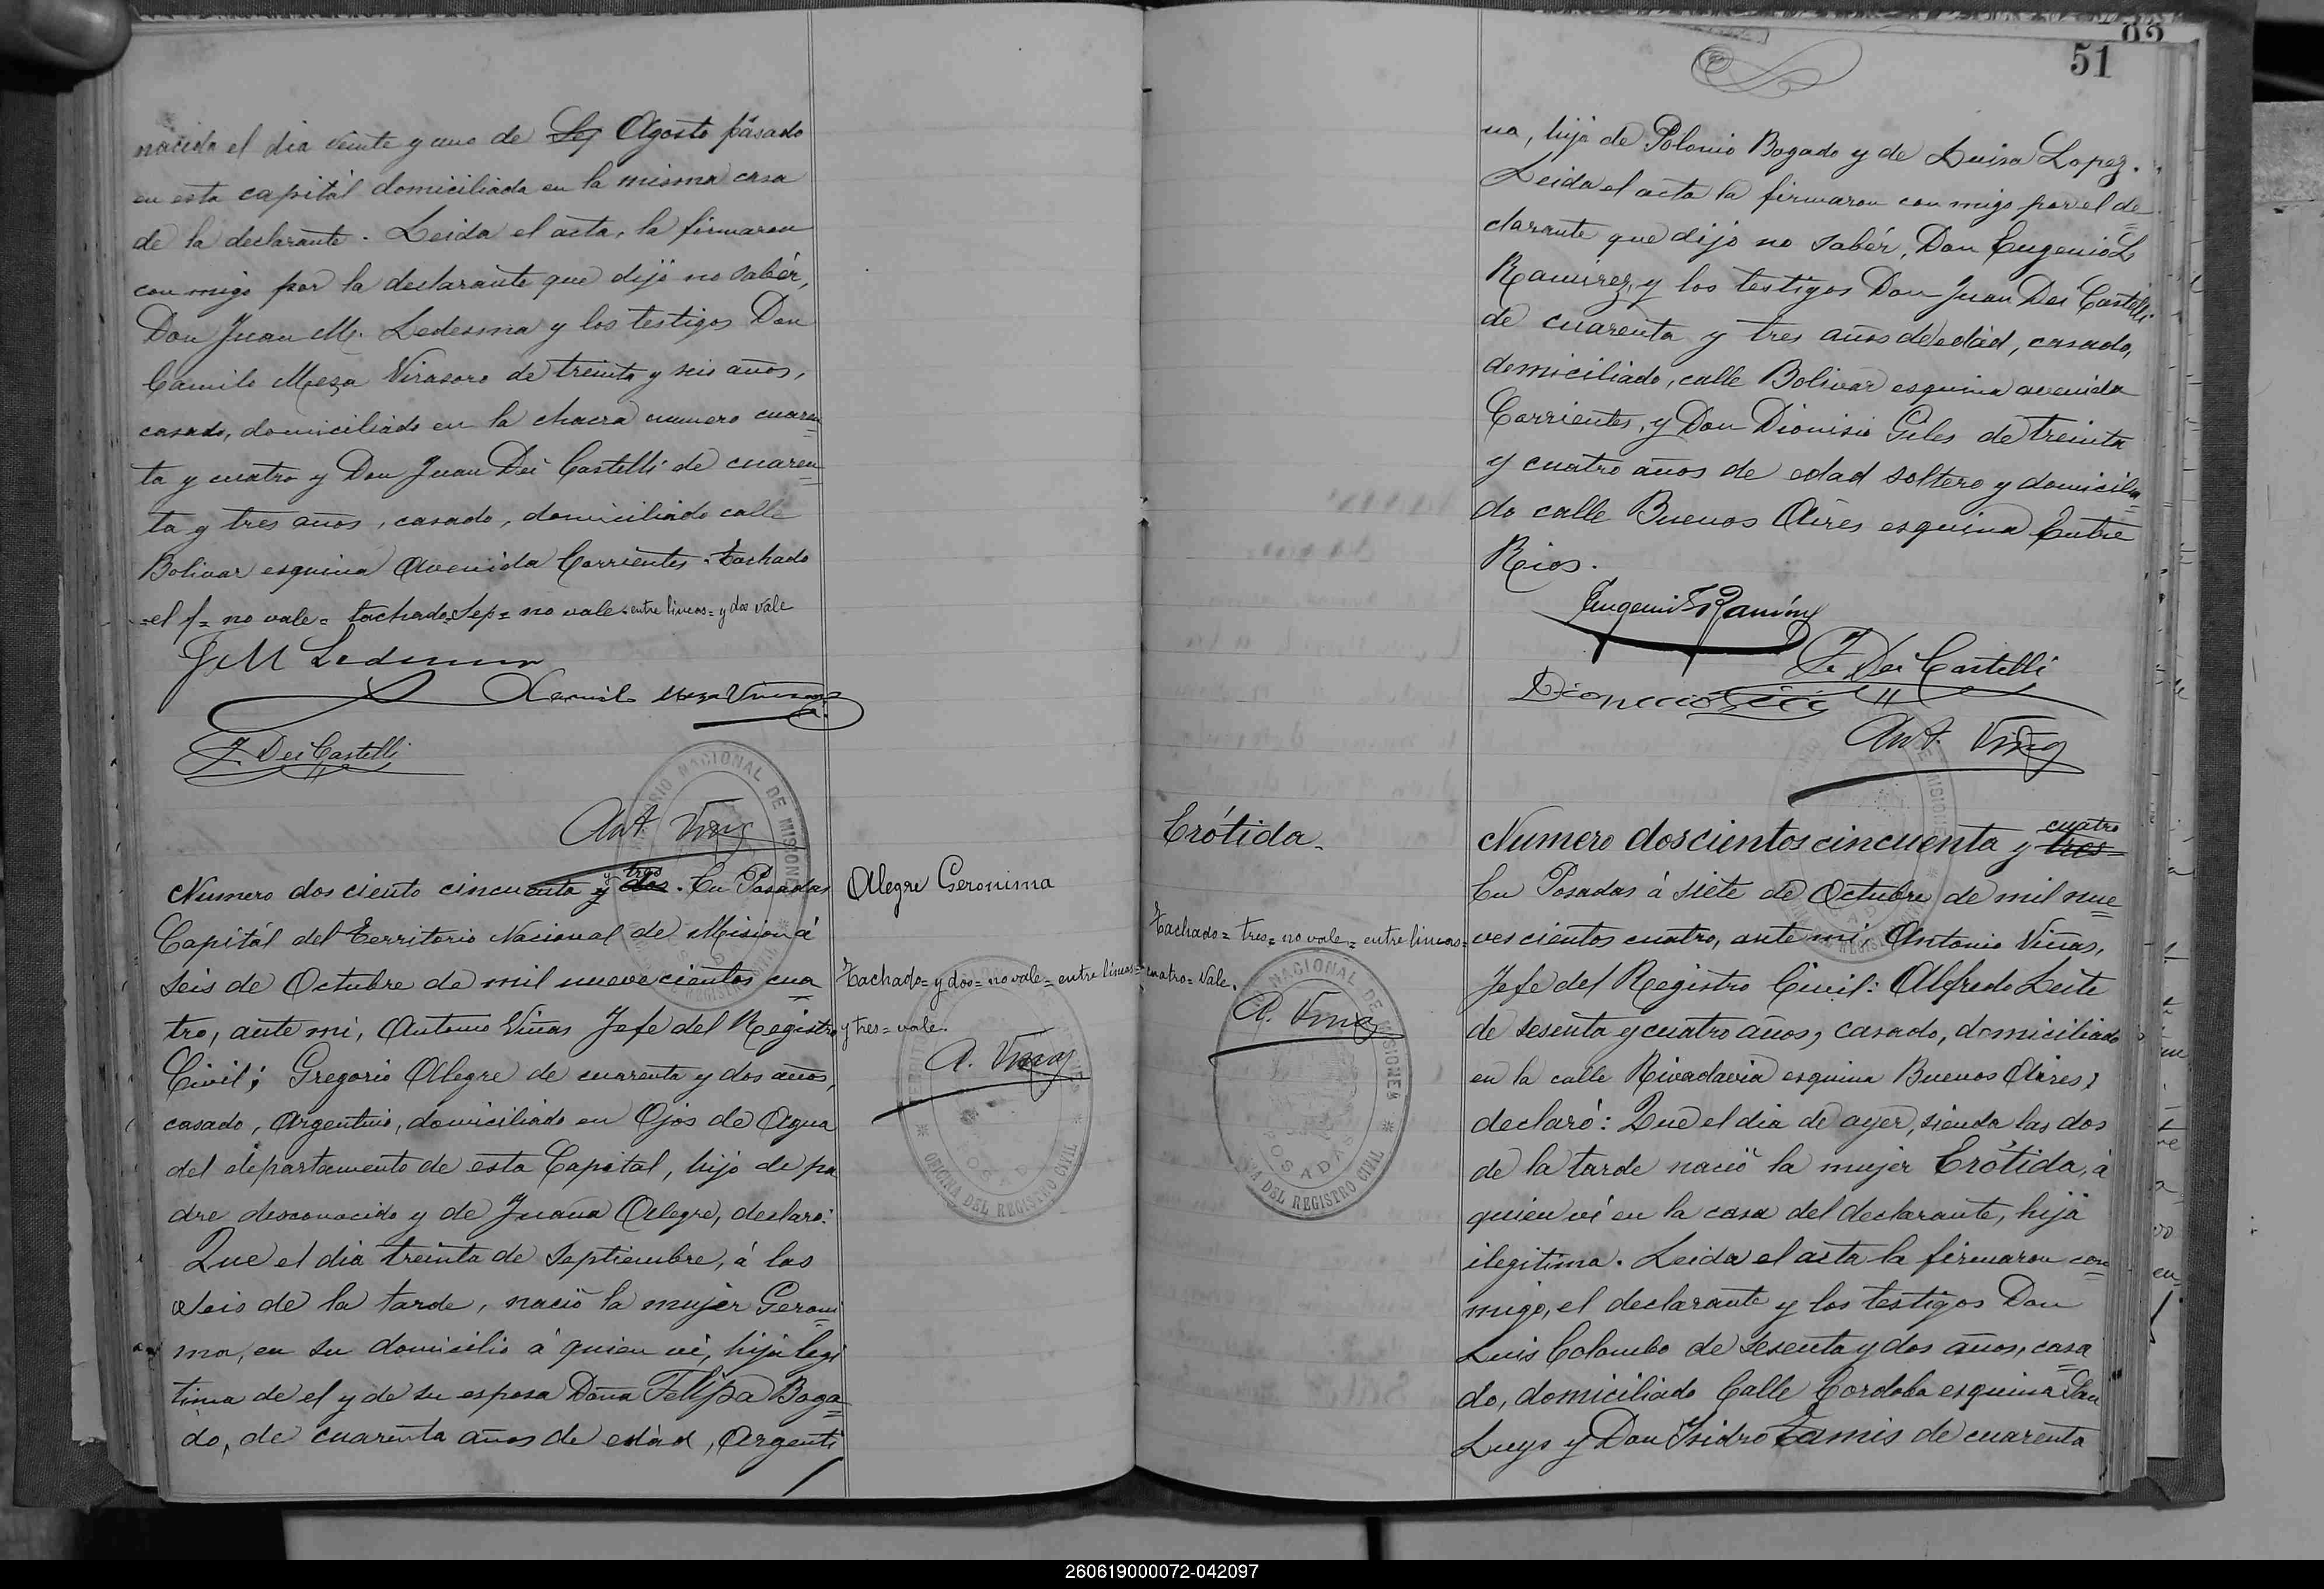 nacida el dia veinte y uno de Sep Agosto pasado
en esta capital domiciliada en la misma casa
de la declarante. Leida el acta, la firmaron
con migo por la declarante que dijo no sabér,
Don Juan M. Ledesma y los testigos Don
Camilo Meza Virasoro de treinta y seis años,
casado, domiciliado en la chacra numero cuaren=
ta y cuatro y Don Juan Dei Castelli de cuaren=
ta y tres años, casado, domiciliado calle
Bolivar esquina Avenida Corrientes. Tachado
=el f= no vale= tachado Sep= no vale=entre lineas= y dos vale
J M Ledesma
Camilo Meza Virasoro
J. Dei Castelli
Ant. Viñas
Numero dos ciento cincuenta y dos y tres. En Posadas
Capitál del Territorio Nacional de Mision á
seis de Octubre de mil nueve cientos cua=
tro, ante mi, Antonio Viñas Jefe del Registro
Civil; Gregorio Alegre de cuarenta y dos años,
casado, Argentino, domiciliado en Ojos de Agua
del departamento de esta Capital, hijo de pa
dre desconocido y de Juana Alegre, declaro:
Que el dia treinta de Septiembre, á las
seis de la tarde, nació la mujer Geroni=
ma, en su domicilio á quien ví, hija legi
tima de el y de su esposa Doña Felipa Boga=
do, de cuarenta años de edád, Argenti
Alegre Geronima
Tachado= y dos= no vale= entre lineas=
y tres= vale.
A. Viñas
TERRITORIO NACIONAL DE MISIONES
POSADAS
OFICINA DEL REGISTRO CIVIL
51
na, hija de Polonio Bogado y de Luisa Lopez.
Leida el acta la firmaron con migo por el de=
clarante que dijo no sabér, Don Eugenio L
Ramirez, y los testigos Don Juan Dei Castelli
de cuarenta y tres años de edád, casado,
domiciliado, calle Bolivar esquina avenida
Corrientes, y Don Dionisio Giles de treinta
y cuatro años de edad soltero y domicilia=
do calle Buenos Aires esquina Entre
Rios.
J. Dei Castelli
Ant. Viñas
Erótida.
Tachado= tres= no vale= entre lineas=
cuatro= Vale.
A. Viñas
NACIONAL DE MISIONES
POSADAS
OFICINA DEL REGISTRO CIVIL
Numero doscientos cincuenta y tres cuatro
En Posadas á siete de Octubre de mil nue=
ves cientos cuatro, ante mi, Antonio Viñas,
Jefe del Registro Civil: Alfredo Leite
de sesenta y cuatro años, casado, domiciliado
en la calle Rivadavia esquina Buenos Aires,
declaró: Que el dia de ayer, siendo las dos
de la tarde nació la mujer Erótida, á
quien ví en la casa del declarante, hija
ilegitima. Leida el acta la firmaron con=
migo, el declarante y los testigos Don
Luis Colombo de sesenta y dos años, casa=
do, domiciliado Calle Cordoba esquina San
Luys y Don Isidro Lamis de cuarenta
260619000072-042097